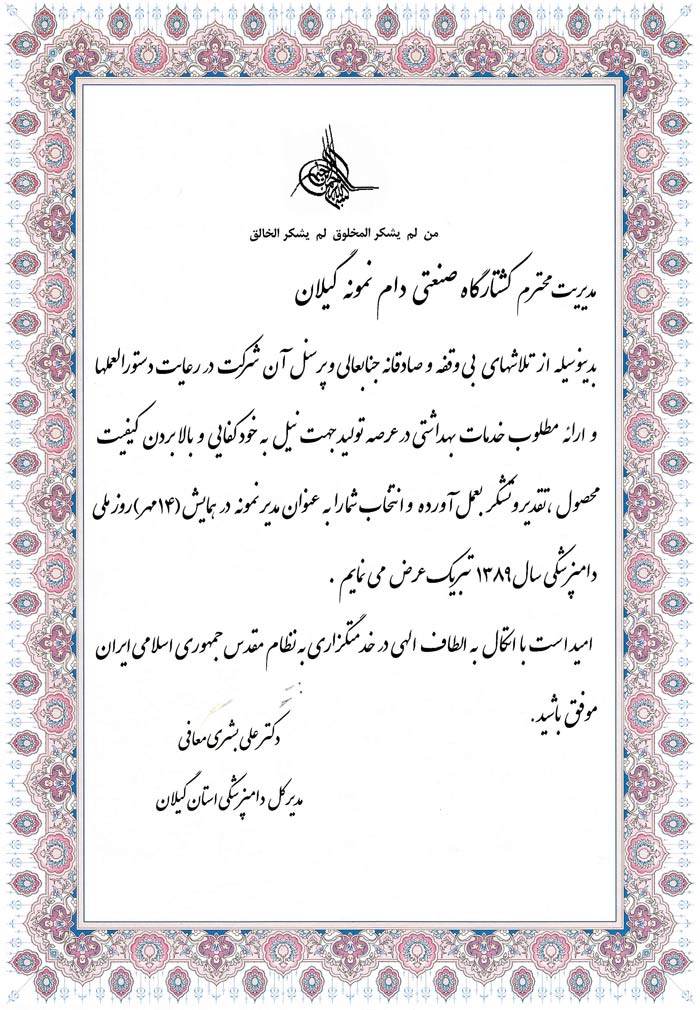 من لم یشکر المخلوق لم یشکر الخالق
مدیریت محترم کشتارگاه صنعتی دام نمونه گیلان
بدینوسیله از تلاشهای بی وقفه و صادقانه جنابعالی و پرسنل آن شرکت در رعایت دستورالعملها
و ارائه مطلوب خدمات بهداشتی در عرصه تولید جهت نیل به خودکفایی و بالا بردن کیفیت
محصول ، تقدیر و تشکر بعمل آورده و انتخاب شما را به عنوان مدیر نمونه در همایش (۱۴مهر) روز ملی
دامپزشکی سال ۱۳۸۹ تبریک عرض می نمایم .
امید است با اتکال به الطاف الهی در خدمتگزاری به نظام مقدس جمهوری اسلامی ایران
موفق باشید.
دکتر علی بشری معافی
مدیر کل دامپزشکی استان گیلان